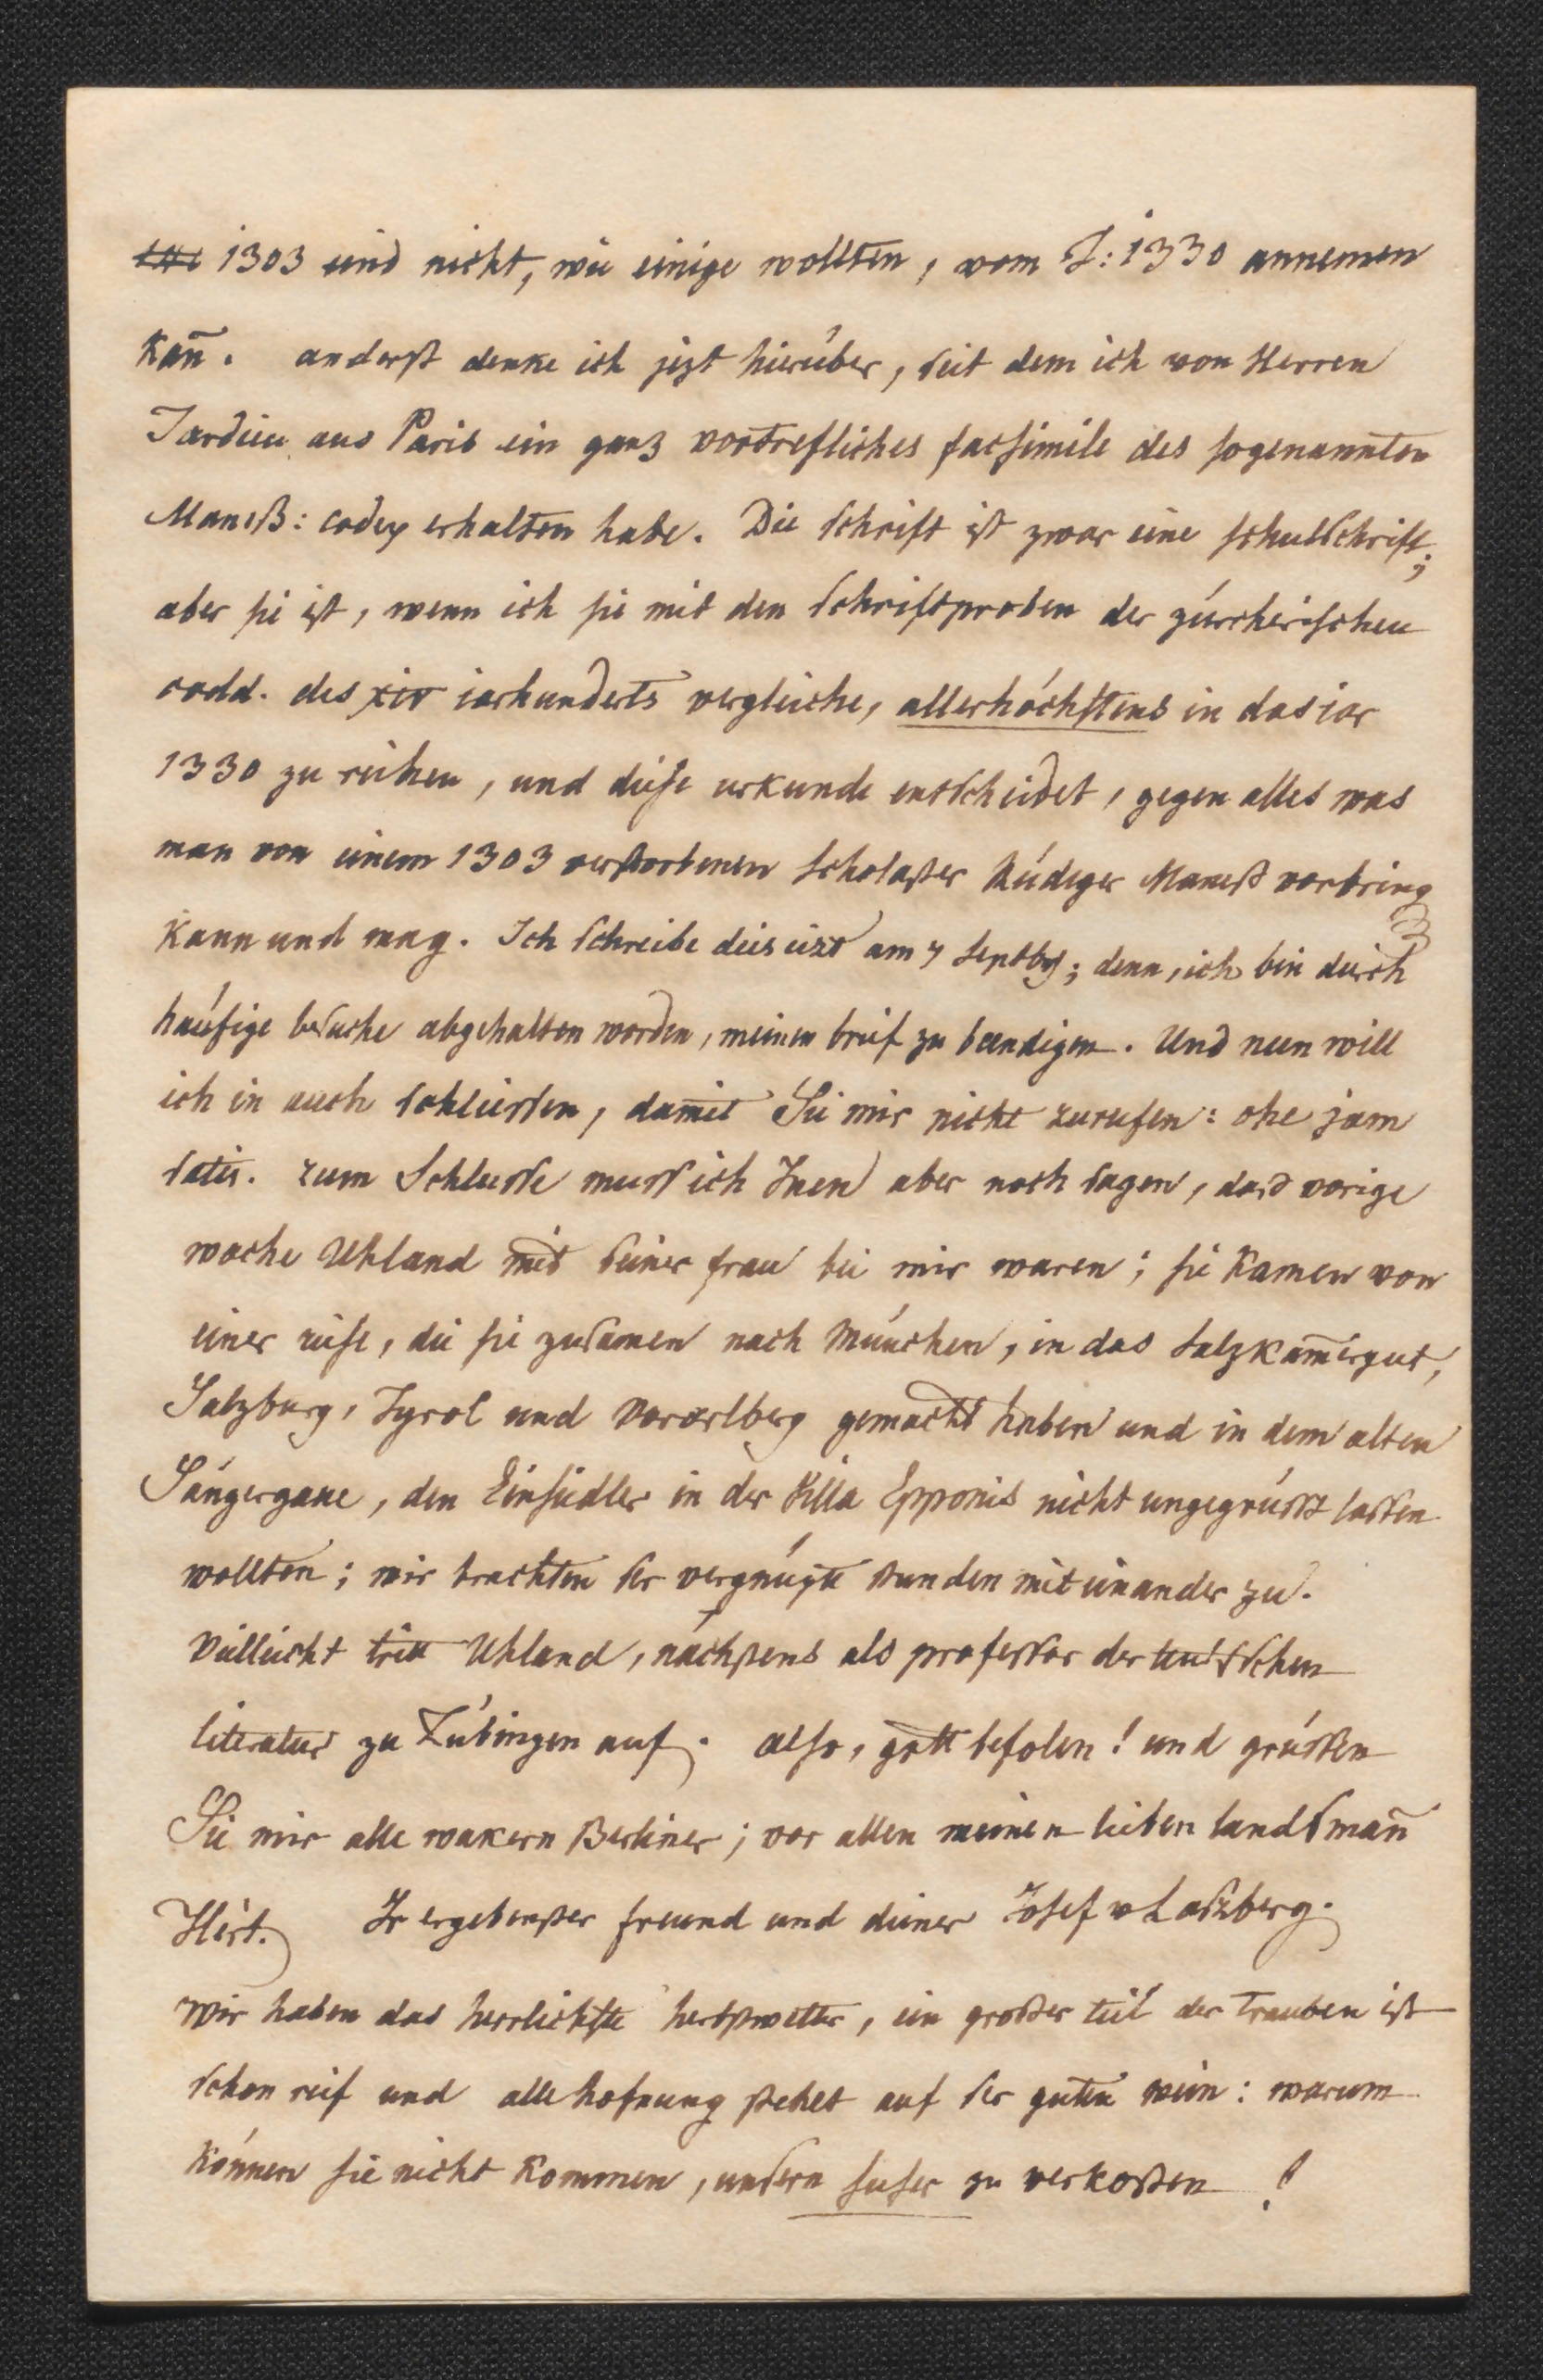 1303 und nicht, wie einige wollten, vom J: 1330 annemen
kan̄. anderst denke ich jezt hierüber, seit dem ich von Herren
Tardieu aus Paris ein ganz vortrefliches facsimile des sogenannten
Maneß: codex erhalten habe. Die schrift ist zwar eine schulschrift;
aber sie ist, wenn ich sie mit den schriftproben der zürcherischen
codd. des xiv iarhunderts vergleiche, allerhöchstens in das iar
1330 zu reihen, und diese urkunde entscheidet, gegen alles was
man von einem 1303 verstorbenen scholaster Rüdeger Maness vorbring
kann und mag. Ich schreibe dies erst am 7 Septbr; denn, ich bin durch
häufige besuche abgehalten worden, meinen brief zu beendigen. Und nun will
ich in auch schliessen, damit Sie mir nicht zurufen: ohe jam
satis. zum Schlusse muss ich Inen aber noch sagen, dass vorige
woche Uhland mit seiner frau bei mir waren; sie kamen von
einer reise, die sie zusamen nach München, in das Salzkam̄ergut,
Salzburg, Tyrol und Vorarlberg gemacht haben und in dem alten
Sängergaue, den Einsiedler in der Villa Epponis nicht ungegrüsst lassen
wollten; wir brachten ser vergnügte stunden miteinander zu.
Villeicht tritt Uhland, nächstens als professor der teutschen
literatur zu Tübingen auf. also, gott befolen! und grüssen
Sie mir alle wakern Berliner; vor allen meinen lieben landsman̄
Hirt. Ir ergebenster freund und diener Josef v Laszberg.
wir haben das herrlichste herbstwetter, ein grosser teil der Trauben ist
schon reif und alle hofnung stehet auf ser guten wein: warum
können sie nicht kommen, unsern suser zu verkosten !